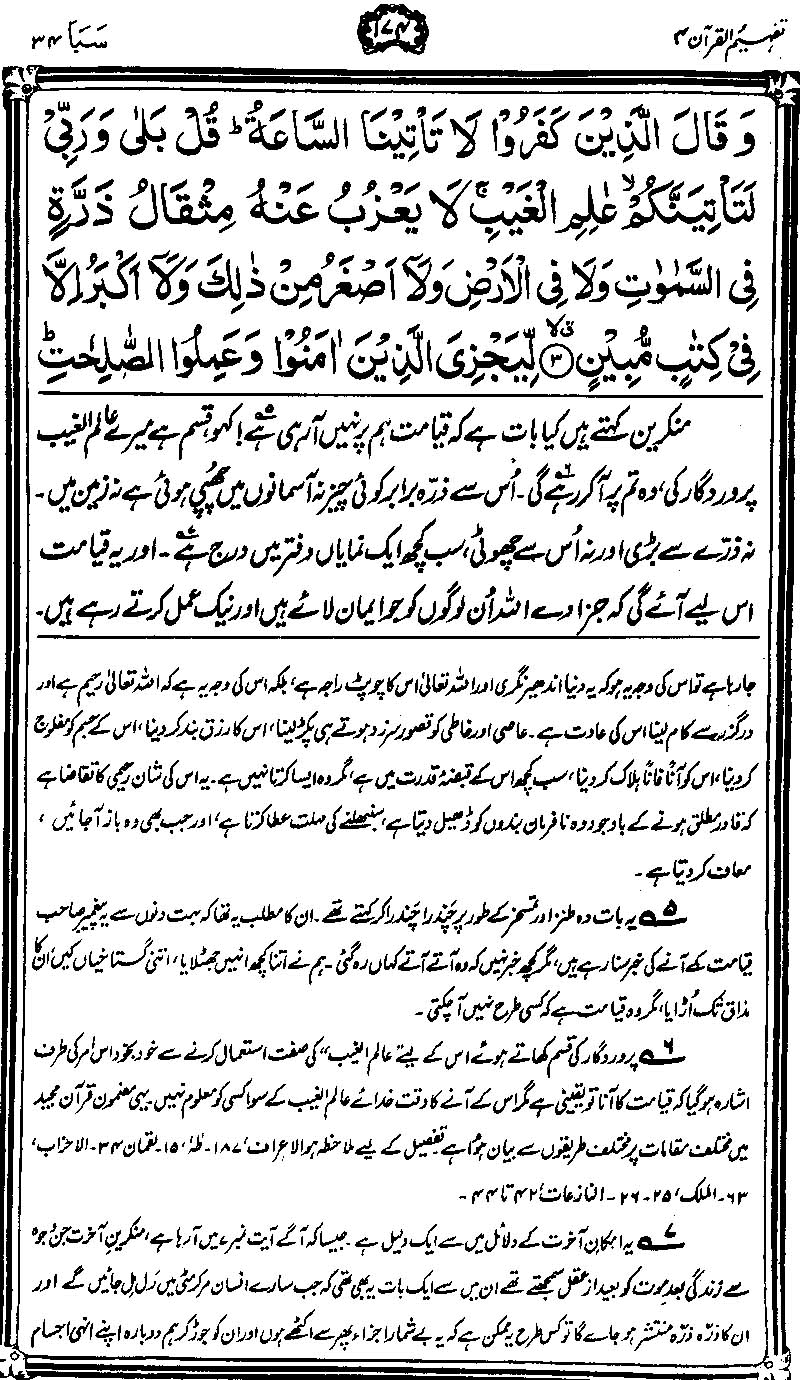 تفہیم القرآن ۴
۱۷۴
سَبَا ۳۴
وَ قَالَ الَّذِیْنَ كَفَرُوْا لَا تَاْتِیْنَا السَّاعَةُ ؕ قُلْ بَلٰى وَ رَبِّیْ
لَتَاْتِیَنَّكُمْ ۙ عٰلِمِ الْغَیْبِ ۚ لَا یَعْزُبُ عَنْهُ مِثْقَالُ ذَرَّةٍ
فِی السَّمٰوٰتِ وَ لَا فِی الْاَرْضِ وَ لَاۤ اَصْغَرُ مِنْ ذٰلِكَ وَ لَاۤ اَكْبَرُ اِلَّا
فِیْ كِتٰبٍ مُّبِیْنٍ ۙ۳ لِّیَجْزِیَ الَّذِیْنَ اٰمَنُوْا وَ عَمِلُوا الصّٰلِحٰتِ ؕ
منکرین کہتے ہیں کیا بات ہے کہ قیامت ہم پر نہیں آرہی ہے۵! کہو، قسم ہے میرے عالم الغیب
پروردگار کی، وہ تم پر آکر رہے گی۔۶ اُس سے ذرّہ برابر کوئی چیز نہ آسمانوں میں چھُپی ہوئی ہے نہ زمین میں۔
نہ ذرّے سے بڑی اور نہ اُس سے چھوٹی، سب کچھ ایک نمایاں دفتر میں درج ہے۷۔ اور یہ قیامت
اس لیے آئے گی کہ جزا دے اللہ اُن لوگوں کو جو ایمان لائے ہیں اور نیک عمل کرتے رہے ہیں۔
جارہا ہے تو اس کی وجہ یہ ہو کہ یہ دنیا اندھیر نگری اور اللہ تعالیٰ اس کا چوپٹ راجہ ہے، بلکہ اس کی وجہ یہ ہے کہ اللہ تعالیٰ رحیم ہے اور
درگزر سے کام لینا اس کی عادت ہے۔ عاصی اور خاطی کو قصور سرزد ہوتے ہی پکڑ لینا، اس کا رزق بند کر دینا، اس کے جسم کو مفلوج
کر دینا، اس کو آناً فاناً ہلاک کر دینا، سب کچھ اس کے قبضۂ قدرت میں ہے، مگر وہ ایسا کرتا نہیں ہے۔ یہ اس کی شان رحیمی کا تقاضا ہے
کہ قادر مطلق ہونے کے باوجود وہ نافرمان بندوں کو ڈھیل دیتا ہے، سنبھلنے کی مہلت عطا کرتا ہے، اور جب بھی وہ باز آجائیں،
معاف کر دیتا ہے۔
۵ یہ بات وہ طنز اور تمسخر کے طور پر چَندرا چَندرا کر کہتے تھے۔ ان کا مطلب یہ تھا کہ بہت دنوں سے یہ پیغمبر صاحب
قیامت کے آنے کی خبر سنا رہے ہیں، مگر کچھ خبر نہیں کہ وہ آتے آتے کہاں رہ گئی۔ ہم نے اتنا کچھ انہیں جھٹلایا، اتنی گستاخیاں کیں، اُن کا
مذاق تک اُڑایا، مگر وہ قیامت ہے کہ کسی طرح نہیں آچکتی۔
۶ پروردگار کی قسم کھاتے ہوئے اس کے لیے "عالم الغیب" کی صفت استعمال کرنے سے خود بخود اس اَمر کی طرف
اشارہ ہوگیا کہ قیامت کا آنا تو یقینی ہے مگر اس کے آنے کا وقت خدائے عالم الغیب کے سوا کسی کو معلوم نہیں۔ یہی مضمون قرآن مجید
میں مختلف مقامات پر مختلف طریقوں سے بیان ہوُا ہے تفصیل کے لیے ملاحظہ ہو الاعراف، ۱۸۷۔ طٰہٰ، ۱۵۔ لقمان، ۳۴۔ الاحزاب،
۶۳۔ الملک، ۲۵۔ ۲۶۔ النازعات، ۴۲ تا ۴۴۔
۷ یہ امکانِ آخرت کے دلائل میں سے ایک دلیل ہے۔ جیسا کہ آگے آیت نمبر ۷ میں آرہا ہے، منکرینِ آخرت جن وجوہ
سے زندگی بعد موت کو بعید از عقل سمجھتے تھے ان میں سے ایک بات یہ بھی تھی کہ جب سارے انسان مر کر مٹی میں رَل مِل جائیں گے اور
ان کا ذرّہ ذرّہ منتشر ہو جائے گا تو کس طرح یہ ممکن ہے کہ یہ بے شمار اجزاء پھر سے اکٹھے ہوں اور ان کو جوڑ کر ہم دوبارہ اپنے انہی اجسام